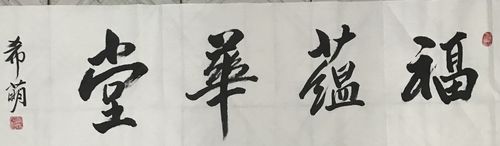 福蘊華堂
希萌